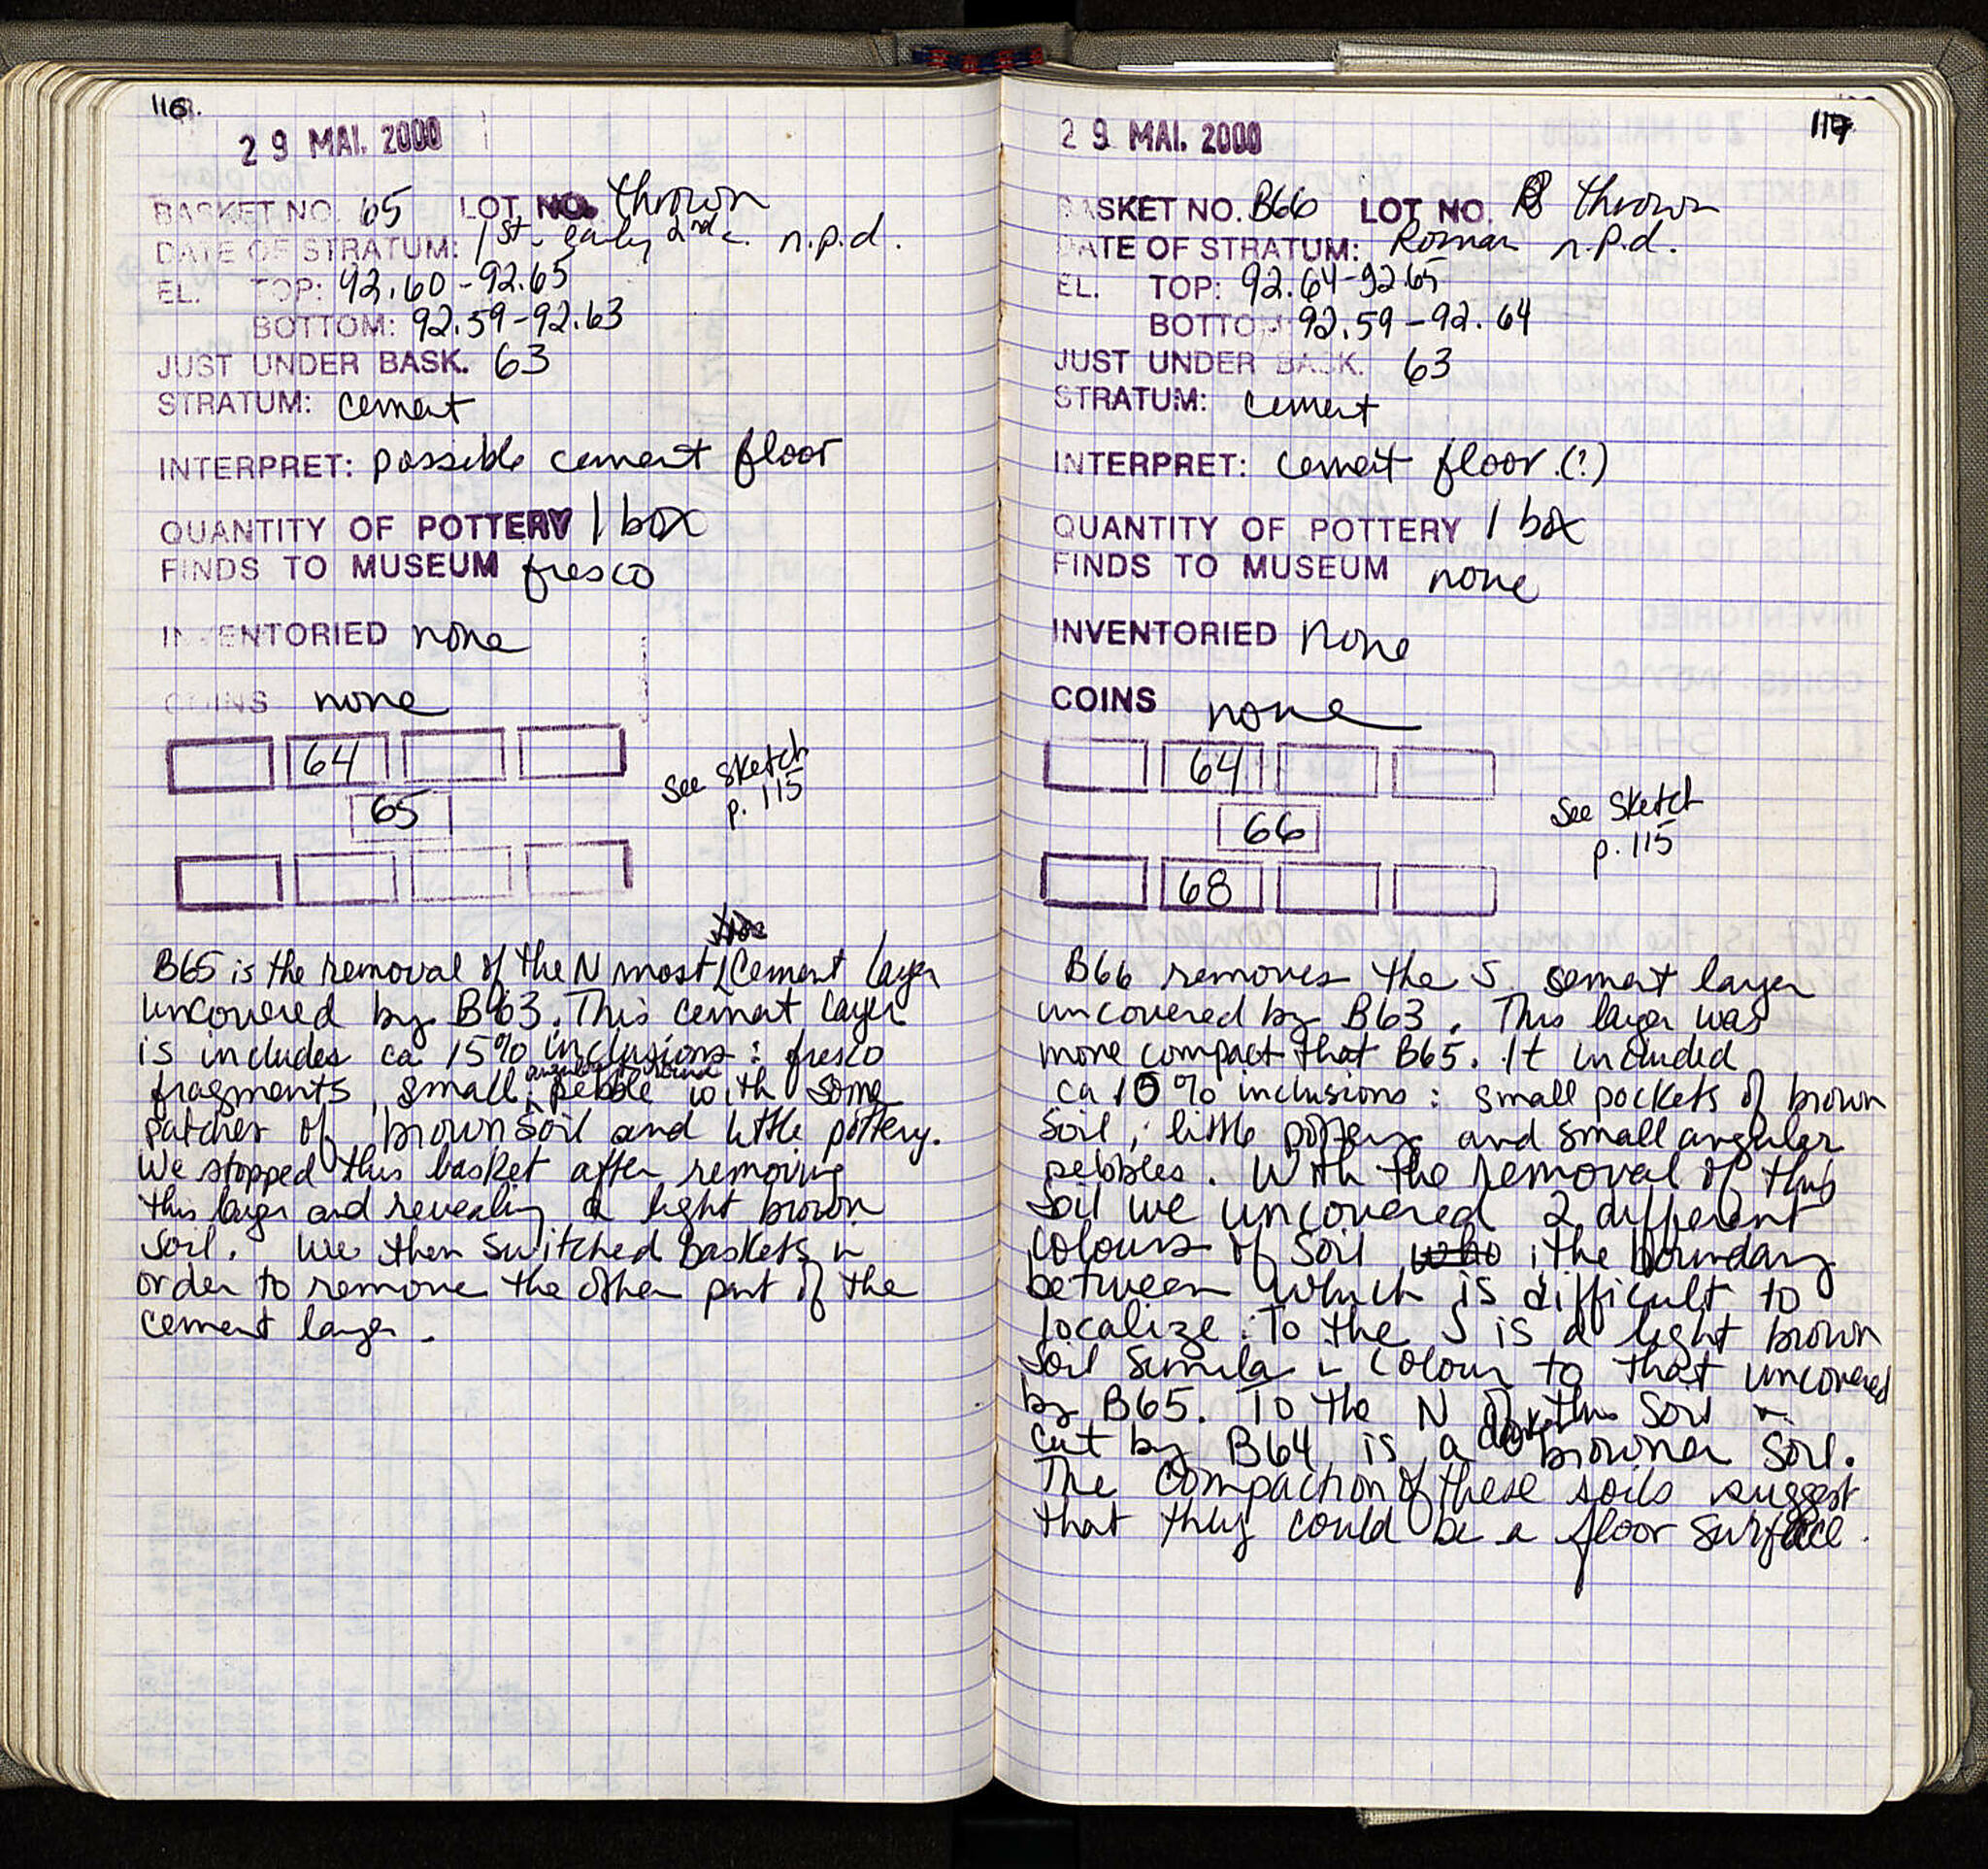 116.
29 MAI. 2000
BASKET NO. 65 LOT NO. thrown
DATE OF STRATUM: 1st - early 2nd c. n.p.d.
EL. TOP: 92.60-92.65
BOTTOM: 92.59-92.63
JUST UNDER BASK. 63
STRATUM: cement
INTERPRET: possible cement floor
QUANTITY OF POTTERY 1 box
FINDS TO MUSEUM fresco
INVENTORIED none
COINS none
64
65
See sketch
p. 115
B65 is the removal of the N most cement layer
uncovered by B63. This cement layer
is includes ca 15% inclusions: fresco
fragments, small angular + round pebble with some
patches of brown soil and little pottery.
We stopped this basket after removing
this layer and revealing a light brown
soil. We then switched baskets in
order to remove the other part of the
cement layer.
117
29 MAI. 2000
BASKET NO. B66 LOT NO. thrown
DATE OF STRATUM: Roman n.p.d.
EL. TOP: 92.64-92.65
BOTTOM: 92.59-92.64
JUST UNDER BASK. 63
STRATUM: cement
INTERPRET: cement floor (?)
QUANTITY OF POTTERY 1 box
FINDS TO MUSEUM none
INVENTORIED none
COINS none
64
66
68
See sketch
p. 115
B66 removes the S. cement layer
uncovered by B63. This layer was
more compact that B65. It included
ca 10% inclusions: small pockets of brown
soil, little pottery and small angular
pebbles. With the removal of this
soil we uncovered 2 different
colours of soil, the boundary
between which is difficult to
localize. To the S is a light brown
soil similar in colour to that uncovered
by B65. To the N of this soil
cut by B64 is a darker browner soil.
The compaction of these soils suggest
that they could be a floor surface.